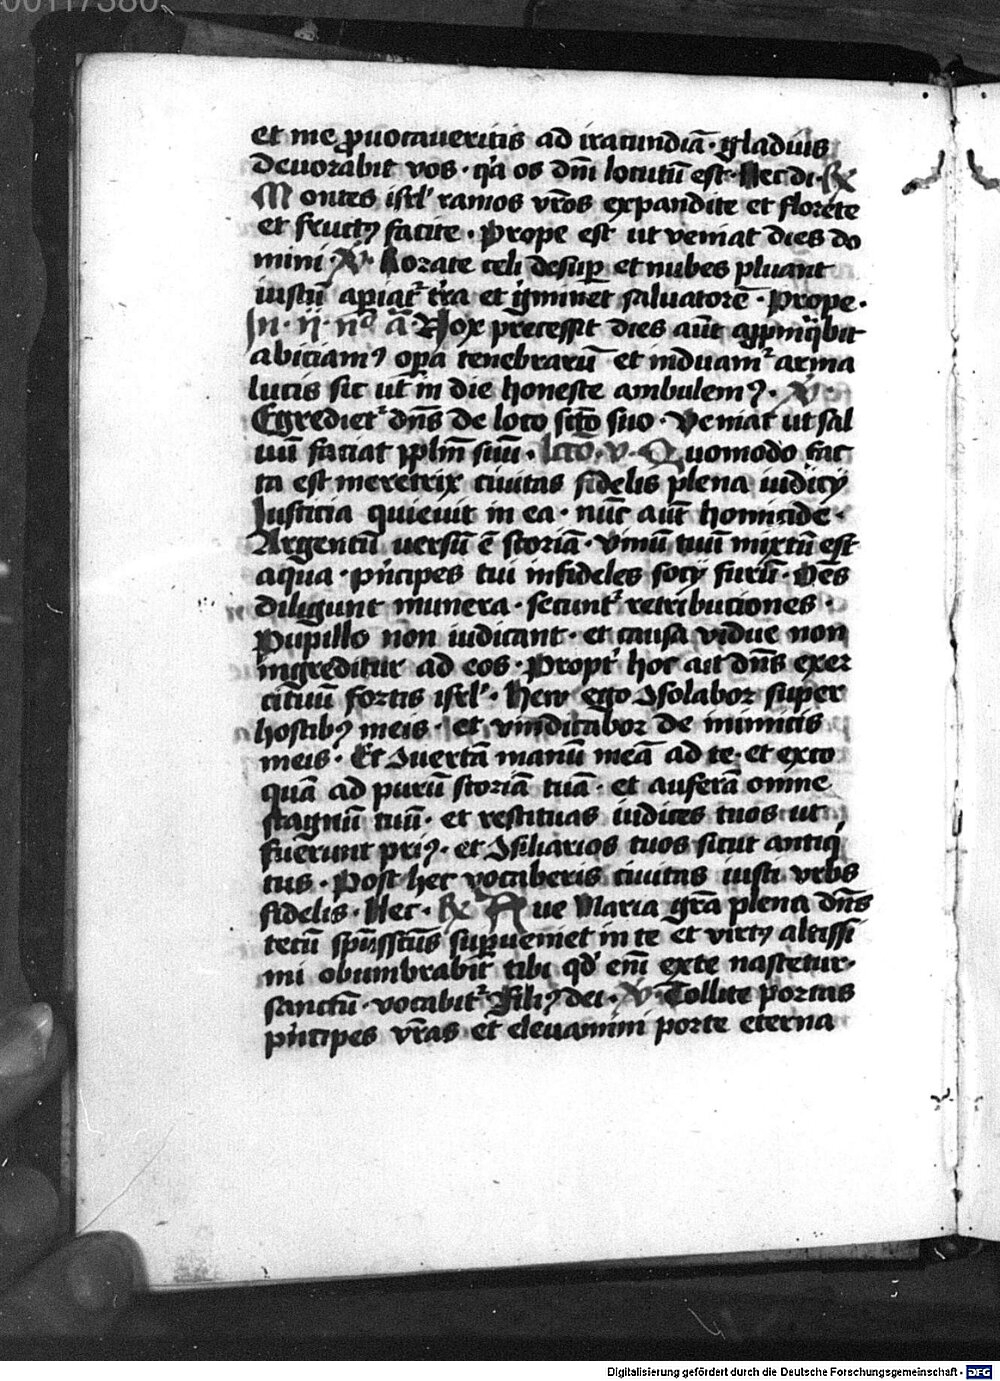 00117380
et me ꝓuocaueritis ad iracundiā · gladius
deuorabit vos · q̄a os dn̄i locutū est · Hec di · ℟
Montes isrl' ramos vr̄os expandite et florete
et fructꝯ facite · Prope est ut veniat dies do
mini · ℣ · Rorate celi desuꝑ et nubes pluant
iustū aꝑiat᷑ tr̄a et gͥminet saluatorē · Prope ·
In · ij · nͦ ā · Nox precessit dies aūt appͥnq̄bit
abiciamꝯ oꝑa tenebrarū et induam᷑ arma
lucis sic ut in die honeste ambulemꝯ · ℣ ·
Egrediet᷑ dn̄s de loco sct̄o suo · Veniat ut sal
uū faciat pplm̄ suū · lcto · v · Quomodo fac
ta est meretrix ciuitas fidelis plena iudicij
Iusticia quieuit in ea · nūc aūt homicide ·
Argentū uersū ē scoriā · Vinū tuū mixtū est
aqua · pͥncipes tui infideles socij furū · Oēs
diligunt munera · secunt᷑ retribuciones ·
Pupillo non iudicant · et causa vidue non
ingreditur ad eos · Propt' hoc ait dn̄s exer
cituū fortis isrl' · Hew ego ꝯsolabor super
hostibꝯ meis · et vindicabor de inimicis
meis · Et ꝯuertā manū meā ad te · et exco
quā ad purū scoriā tuā · et auferā omne
stagnū tuū · et restituas iudices tuos ut
fuerunt priꝯ · et ꝯsiliarios tuos sicut antiqͥ
tus · Post hec vocaberis ciuitas iusti vrbs
fidelis · Hec · ℟ Aue Maria gr̄a plena dn̄s
tecū spūssctūs suꝑueniet in te et virtꝯ altissi
mi obumbrabit tibi qd' em̄ exte nascetur ·
sanctū · vocabit᷑ filiꝯ dei · ℣ · Tollite portas
pͥncipes vr̄as et eleuamini porte eterna
Digitalisierung gefördert durch die Deutsche Forschungsgemeinschaft - DFG